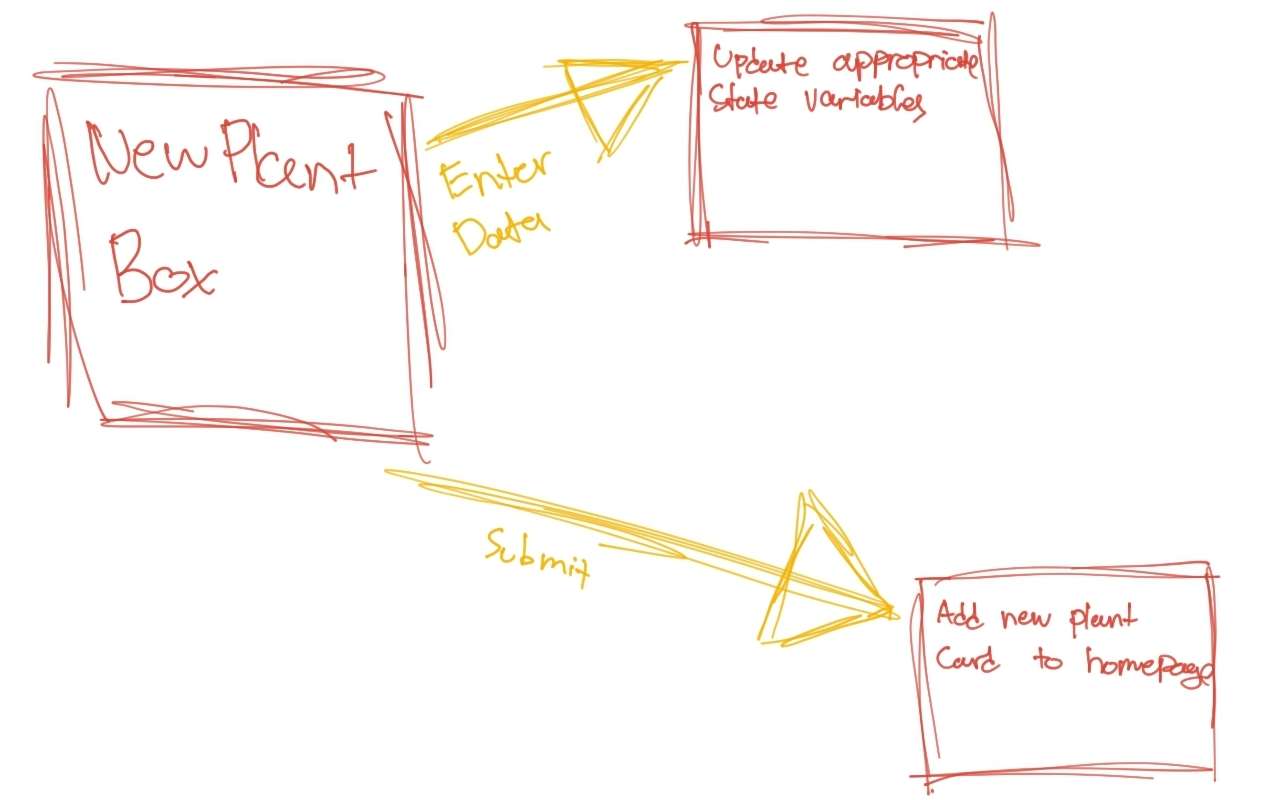 New Plant
Box
Enter
Data
Update appropriate
State variables
Submit
Add new plant
Card to homepage